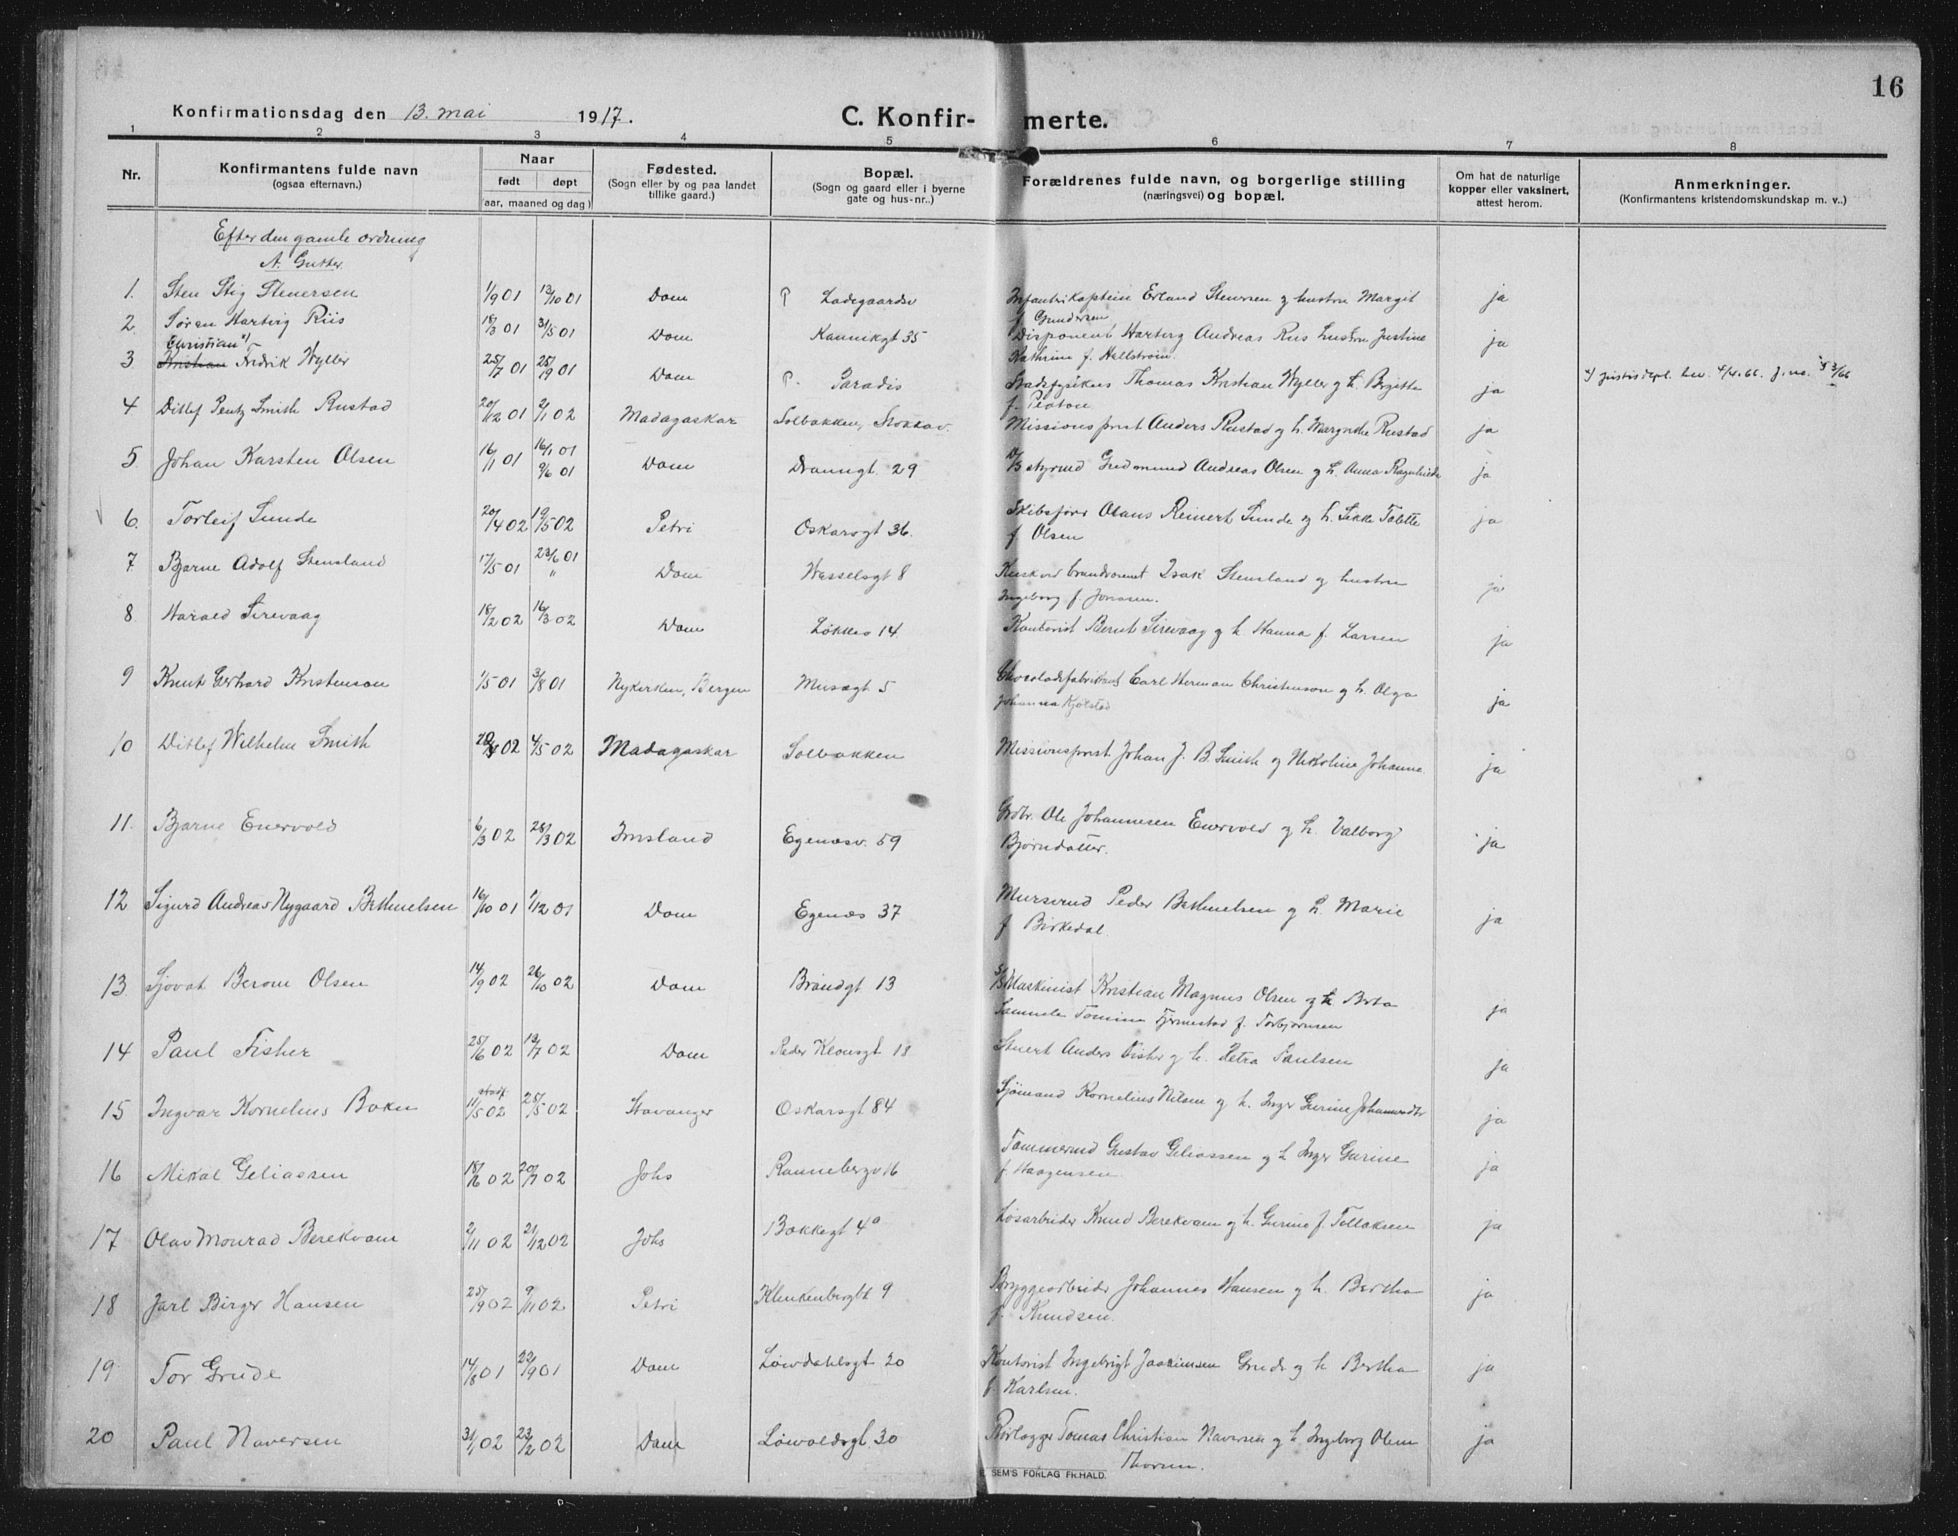 16
Konfirmationsdag den 13. mai 1917. C. Konfir- merte.
1 2 3 4 5 6 7 8
Nr. Konfirmantens fulde navn (ogsaa efternavn.) Naar født døpt (aar, maaned og dag) Fødested. (Sogn eller by og paa landet tillike gaard.) Bopæl. (Sogn og gaard eller i byerne gate og hus-nr..) Forældrenes fulde navn, og borgerlige stilling (næringsvei) og bopæl. Om hat de naturlige kopper eller vaksinert, attest herom. Anmerkninger. (Konfirmantens kristendomskundskap m. v..)
Efter den gamle ordning
A. Gutter.
1. Sten Stig Stenersen 1/9 01 13/10 01 Dom Ladegaardsv Infanterikaptein Erland Stenersen og hustru Margit ja
f. Gundersen
2. Søren Hartvig Riis 18/3 01 31/5 01 Dom Kannikgt 35 Disponent Hartvig Andreas Riis hustru Justine ja
Kathrine f. Hallstrøm.
Christian *)
3 Kristian Fredrik Wyller 25/7 01 Dom P. Paradis Stadsfysikus Thomas Kristian Wyller og h. Birgitte ja *) justisdepl. bev. 4/4.66. j. no.
f. Ploton
4 Ditlef Pentz Smith Rustad 20/12 01 2/1 02 Madagaskar Solbakken, Stokkav. Missionsprest Anders Rustad og h. Margrethe Rustad ja
5. Johan Karsten Olsen 16/1 01 9/6 01 Dom 29 Gudmund Andreas Olsen og h. Anna Ragnhilda ja
6. Torleif Sunde 20/4 02 19/5 02 Petri Oskarsgt 36. Skibsfører Olaus Reinert Sunde og h. Sikke Tolette ja
f Olsen
7. Bjarne Adolf Stensland 17/5 01 23/6 01 " Dom Wesselsgt 8 Kusk ved brandvæsenet Isak Stensland og hustru ja
Ingeborg f. Jonasen.
8 Harald Sirevaag 18/2 02 16/3 02 Dom Løkkev 14 Kontorist Bernt Sirevaag og h. Hanna f. Larsen ja
9 Knut Gerhard Kristenson 1/5 01 3/8 01 Nykirken, Bergen Musægt 5 Chocoladefabrikant Carl Herman Christenson og h. Olga ja
Johanna Kjølstad
10 Ditlef Wilhelm Smith 02 4/5 02 Madagaskar Solbakken Missionsprest Johan J. B. Smith og Nikoline Johanne ja
11. Bjarne Enervold 6/3 02 28/3 02 Imsland Egenæsv. 59 Grdbr. Ole Johannesen Enervold og h. Valborg ja
Bjørndatter.
12 Sigurd Andreas Nygaard Bethuelsen 16/10 01 1/12 01 Dom Egenæs 37 Mursvend Peder Bethuelsen og h. Marie ja
f Birkedal.
13 Sjovat Berom Olsen 14/9 02 26/10 02 Dom Brandgt 13 Maskinist Kristian Magnus Olsen og h Berta ja
Samuele Tomine Tjernestad f. Torbjørnsen
14 Paul Fisher 25/6 02 13/7 02 Dom Peder Klousgt 18 Stuert Anders Fisher og h. Petra Paulsen ja
15 Ingvar Kornelius Boken 11/5 02 25/5 02 Stavanger Oskarsgt 84 Sjømand Kornelius Nilsen og h. Inger Gurine Johannesdtr ja
16 Mikal Geliassen 18/6 02 20/7 02 Johs Rannebergv 16 Tømmermd Gustav Geliassen og h Inger Gurine ja
f. Haagensen
17 Olav Monrad Berekvam 2/11 02 21/12 02 Johs Bakkegt 4a Løsarbeider Knud Berekvam og h. Gurine f. Tollaksen ja
18 Jarl Birger Hansen 25/9 02 9/11 02 Petri Klinkenberggt 9 Bryggearbeider Johannes Hansen og h. Bertha ja
f. Knudsen.
19 Tor Grude 14/8 01 22/9 01 Dom Løwdahlsgt 20 Kontorist Ingebrigt Joakimsen Grude og h Bertha ja
f. Karlsen.
20 Paul Naversen 31/1 02 23/2 02 Dom Løwoldsgt 30 Rørlægger Tomas Christian Naversen og h Ingeborg Oline ja
Thorsen.
SEM'S FORLAG FR.HALD.